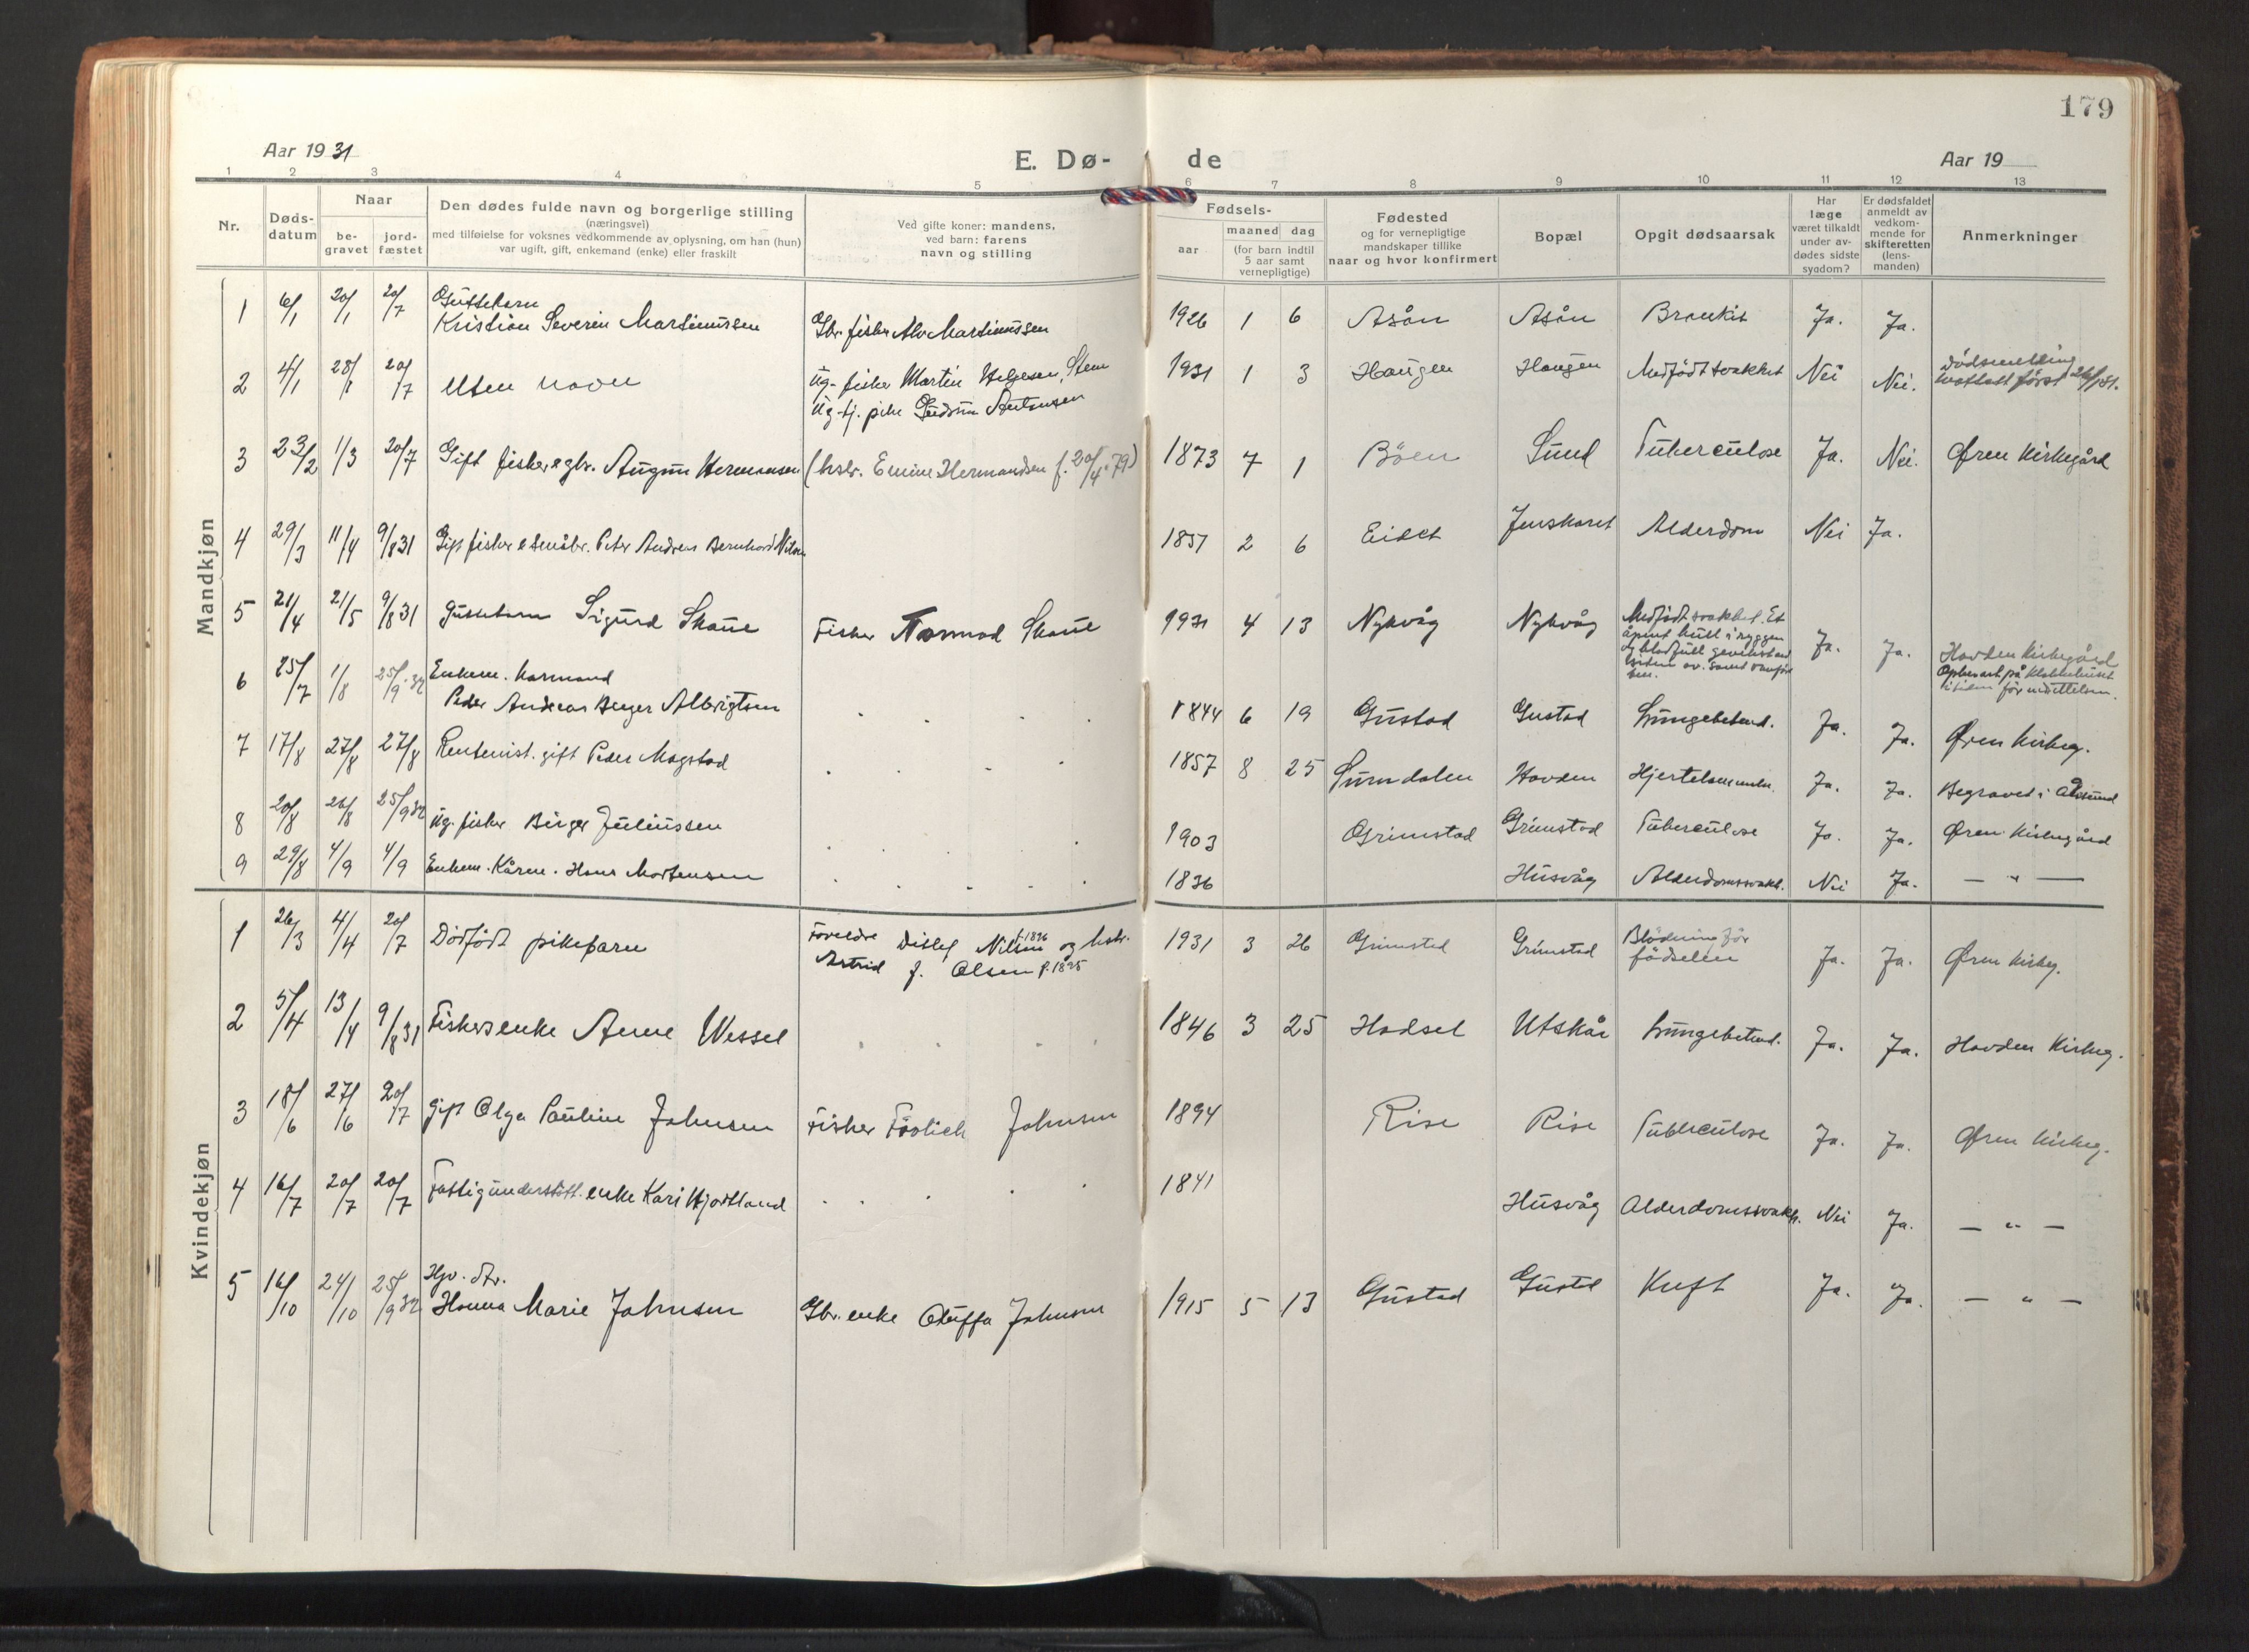 179
Aar 1931
E. Dø-
de
Aar 19
1 2 3 4 5 6 7 8 9 10 11 12 13
Nr.
Døds-
datum
Naar
be-
gravet
jord-
fæstet
Den dødes fulde navn og borgerlige stilling
(næringsvei)
med tilføielse for voksnes vedkommende av oplysning, om han (hun)
var ugift, gift, enkemand (enke) eller fraskilt
Ved gifte koner: mandens,
ved barn: farens
navn og stilling
Fødsels-
aar
maaned dag
(for barn indtil
5 aar samt
vernepligtige)
Fødested
og for vernepligtige
mandskaper tillike
naar og hvor konfirmert
Bopæl
Opgit dødsaarsak
Har
læge
været tilkaldt
under av-
dødes sidste
sygdom?
Er dødsfaldet
anmeldt av
vedkom-
mende for
skifteretten
(lens-
manden)
Anmerkninger
Mandkjøn
1 6/1 20/1 20/7 Guttebarn
Kristian Severin Martinussen Gbr. fisker Alv Martinussen 1926 1 6 Asån Asån Bronkit Ja. Ja.
2 4/1 28/1 20/7 Uten navn Ug. fisker Martin Helgesen, Stene
Ug. tj. pike Gudrun Antonsen 1931 1 3 Haugen Haugen Medfödt svakhet Nei Nei. Dödsmelding
mottatt först 26/1 31.
3 23/2 1/3 20/7 Gift fisker e gbr. August Hermansen (hstr. Emine Hermandsen f. 20/4 79) 1873 7 1 Böen Sund Tuberculose Ja. Nei. Øren Kirkegård
4 29/3 11/4 9/8 31 Gift fisker e småbr. Peter Andreas Bernhard Nilsen 1857 2 6 Eidet Jenskaret Alderdom Nei Ja.
5 21/4 21/5 9/8 31 Guttebarn Sigurd Skaue Fisker Normod Skaue 1931 4 13 Nykvåg Nykvåg Medfödt svakhet. Et
åpent hull i ryggen
Ja. Ja. Hovden Kirkegård
Opbevart på klokkehuset
i tiden för
6 25/7 1/8 25/9 32 Enkem. kårmand
Peder Andreas Berger Albrigtsen 1844 6 19 Gustad Gustad Lungebetend. Ja. Ja. Øren Kirkeg.
7 17/8 27/8 27/8 Rentenist. gift Peder Magstad 1857 8 25 Surndalen Hovden Hjertelammelse. Ja. Ja. Begravet i Ålesund
8 20/8 26/8 25/9 32 Ug. fisker Birger Juliussen 1903 Grimstad Grimstad Tuberculose Ja. Ja. Øren Kirkegård
9 29/8 4/9 4/9 Enkem. Kårm. Hans Mortensen 1836 Husvåg Alderdomssvakh. Nei Ja. — " —
Kvindekjøn
1 26/3 4/4 20/7 Dödfödt pikebarn Foreldre Ditlef Nilsen f. 1896 og hstr.
Astrid f. Olsen f. 1895 1931 3 26 Grimstad Grimstad Blödning för
födselen Ja. Ja. Øren Kirkeg.
2 5/4 13/4 9/8 31 Fiskers enke Anne Wessel 1846 3 25 Hadsel Utskår Lungebetend. Ja. Ja. Hovden Kirkeg.
3 18/6 27/6 20/7 gift Olga Pauline Johnsen Fisker Frolich Johnsen 1894 Rise Rise Tuberculose Ja. Ja. Øren Kirkeg.
4 16/7 20/7 20/7 Fattigunderstött. enke Kari Hjortland 1841 Husvåg Alderdomssvakh. Nei Ja. — " —
5 16/10 24/10 25/9 32 Hjv. dtr.
Hanna Marie Johnsen Gbr. enke Oluffa Johnsen 1915 5 13 Gustad Gustd Kuft Ja. Ja. — " —